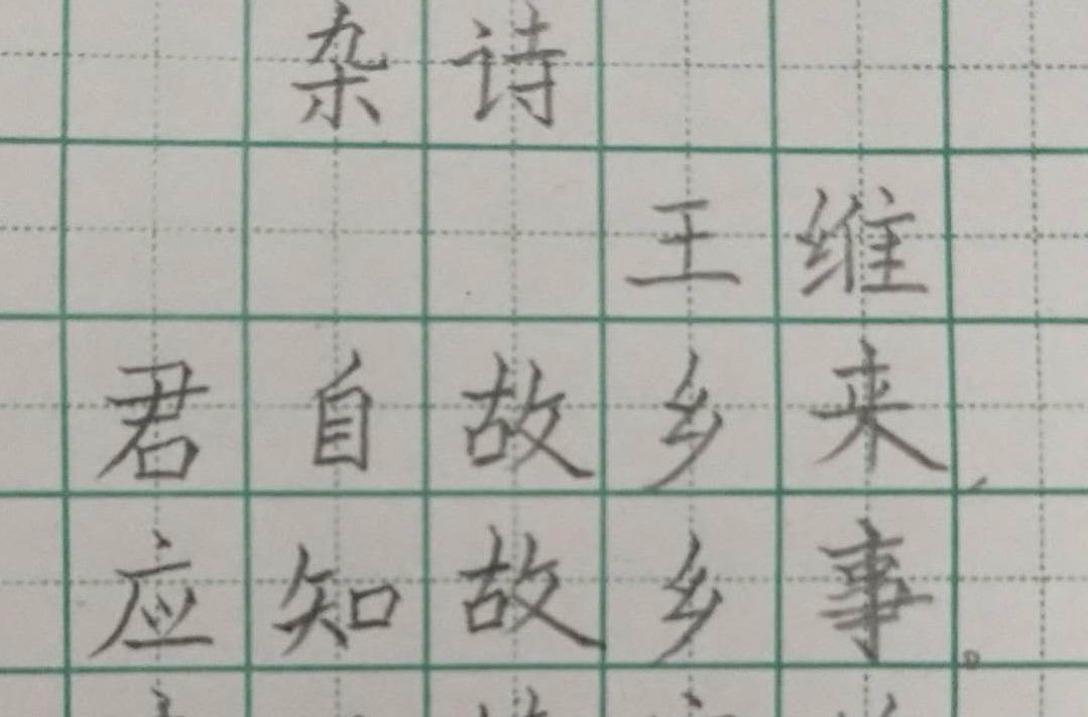 杂诗
王维
君自故乡来，
应知故乡事。